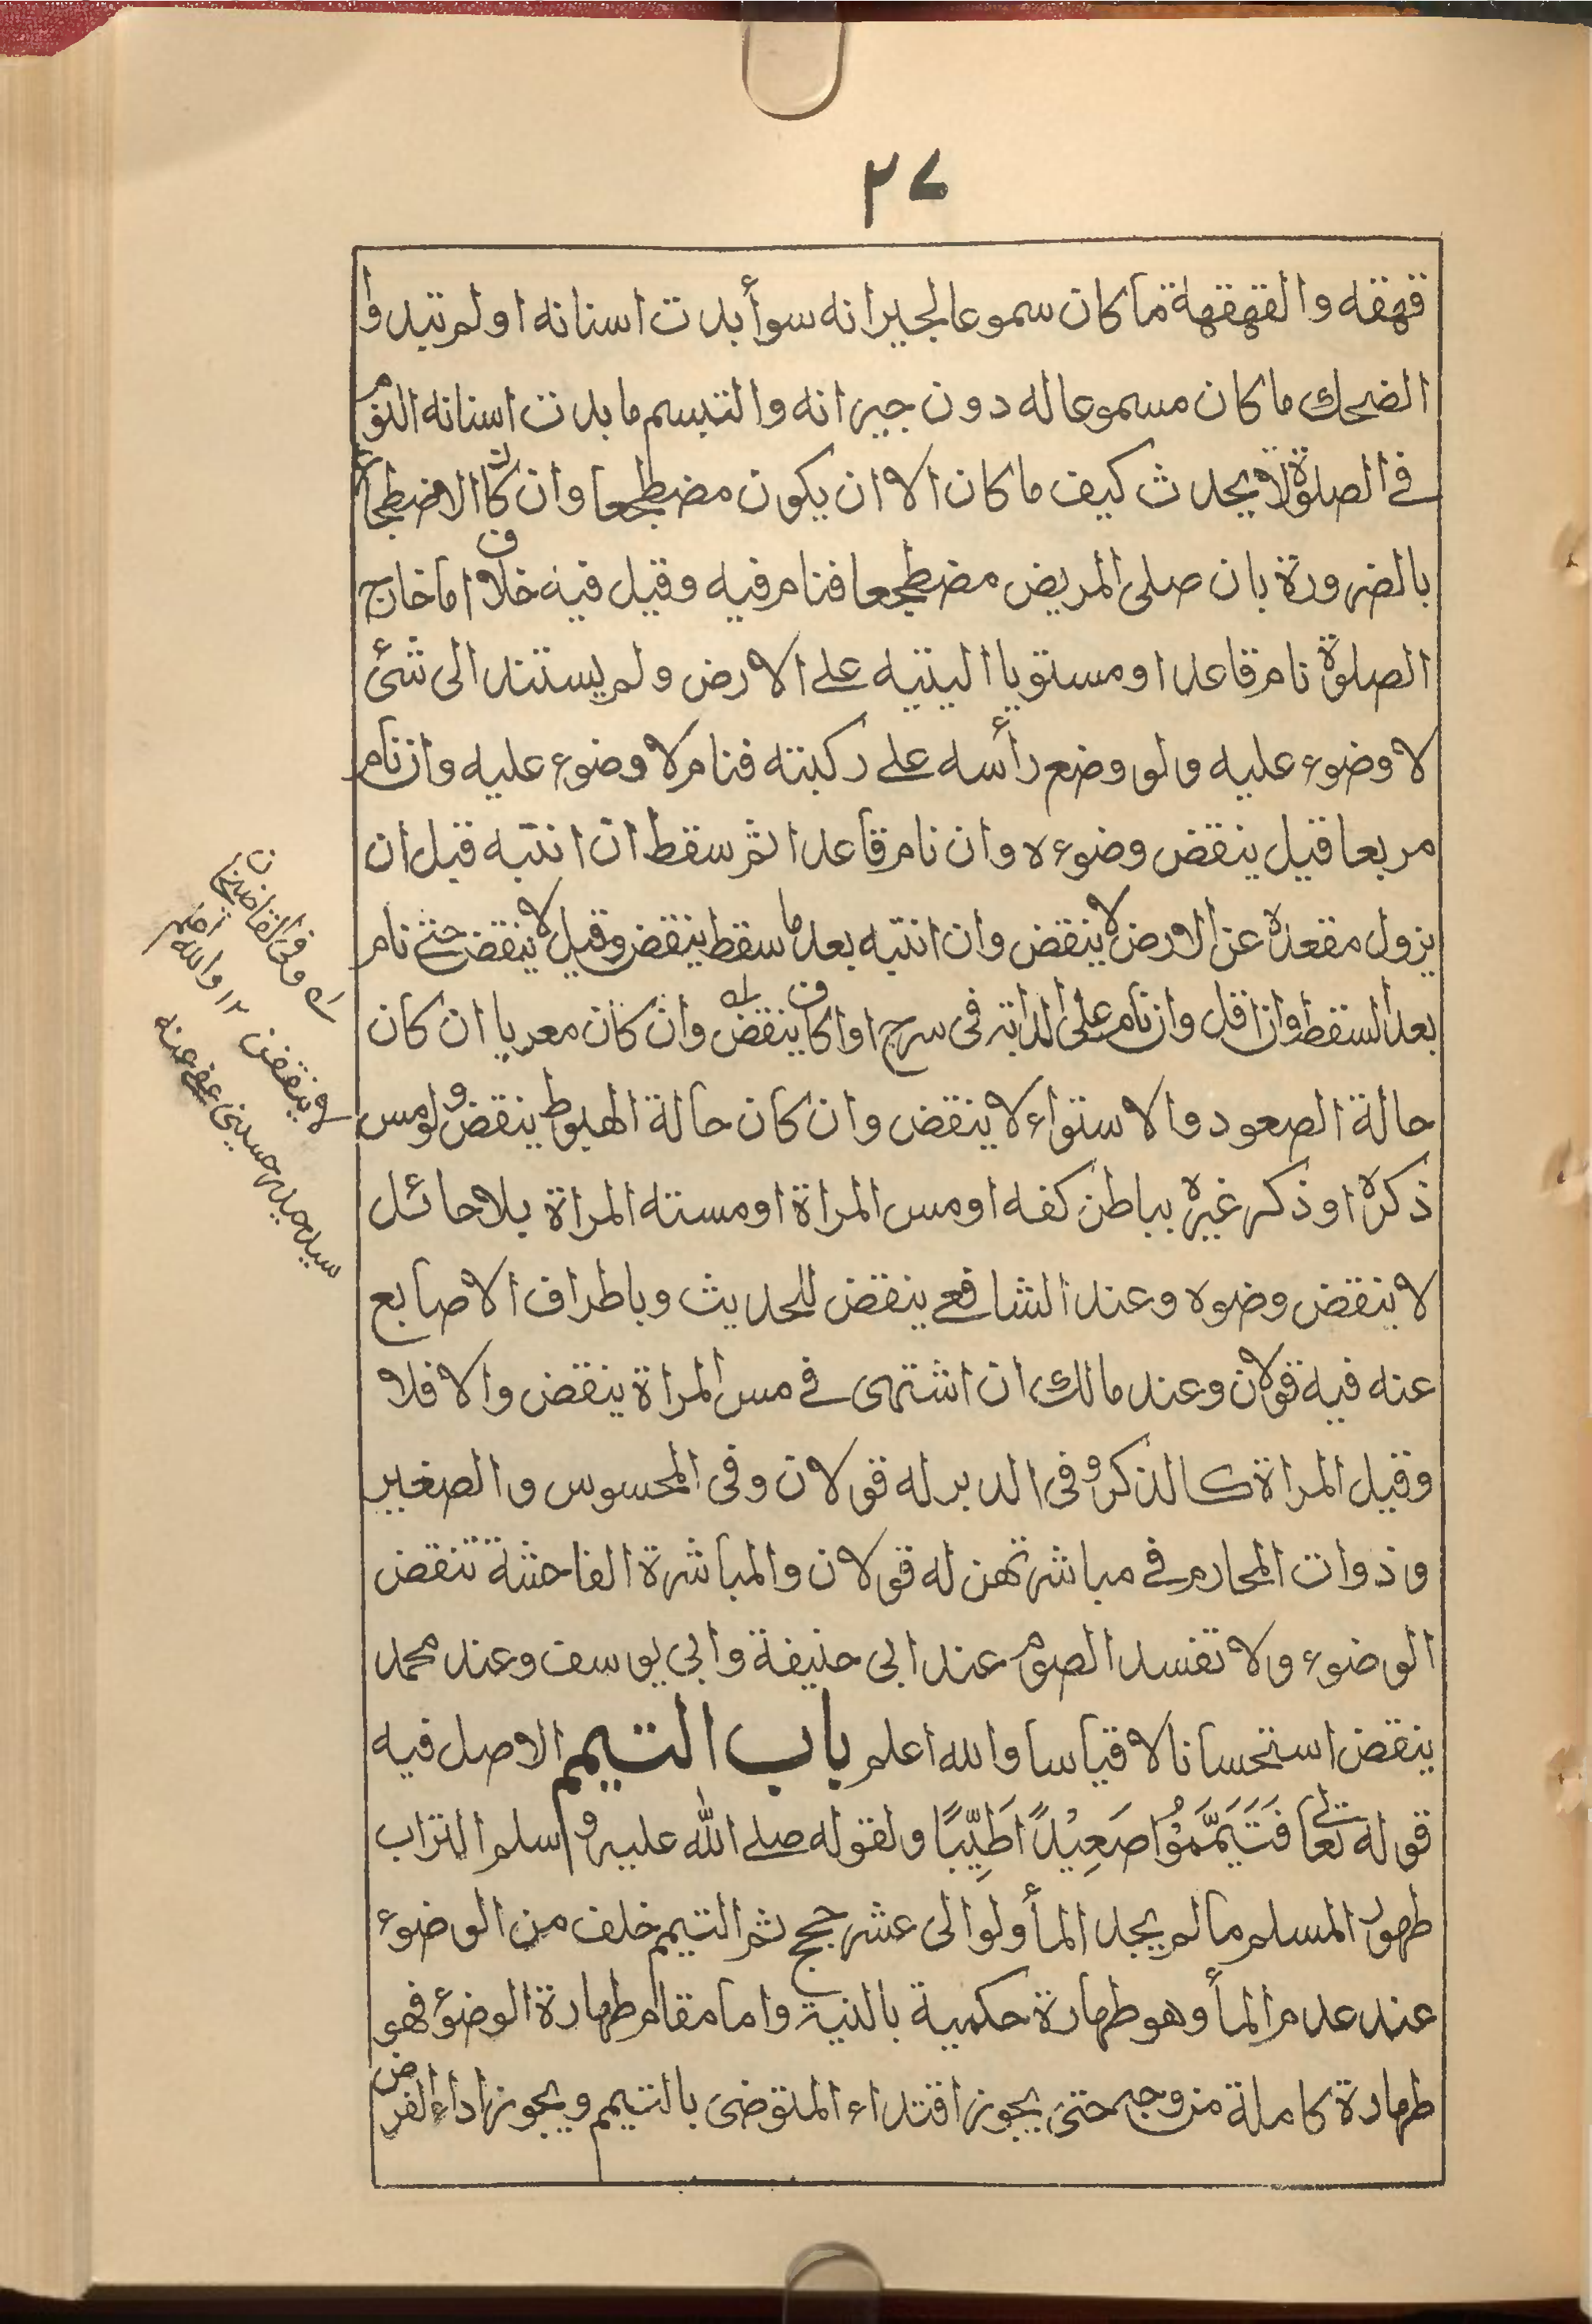 ٢٧
قهقه والقهقهة ما كان سموعا لجيرانه سوأ بدت اسنانه اولم تبد وا
الضحك ما كان مسموعا له دون جيرانه والتبسم ما بدت اسنانه النوم
فى الصلوة لا يحدث كيف ما كان الا ان يكون مضطجعا وان كان الاضطجاع
بالضرورة بان صلى المريض مضطجعا فنام فيه وقيل فيه خلاف اما خارج
الصلوة نام قاعدا او مستويا اليتيه على الارض ولم يستند الى شئ
لا وضوء عليه ولو وضع رأسه على ركبته فنام لا وضوء عليه وان نام
مربعا قيل ينقض وضوءه وان نام قاعدا ثم سقط ان انتبه قبل ان
يزول مقعدة عن الارض لا ينقض وان انتبه بعد ما سقط ينقض وقيل لا ينقض حتى نام
بعد السقط وان اقل وان نام على الدابة فى سرج او اكاف ينقض وان كان معريا ان كان
حالة الصعود والاستواء لا ينقض وان كان حالة الهبوط ينقض ولو مس
ذكره او ذكر غيره بباطن كفه او مس المراة او مسته المراة بلا حائل
لا ينقض وضوه وعند الشافعى ينقض للحديث وباطراف الاصابع
عنه فيه قولان وعند مالك ان اشتهى فى مس المراة ينقض والا فلا
وقيل المراة كالذكر وفى الدبر له قولان وفى المحسوس والصغير
وذوات المحارم فى مباشرتهن له قولان والمباشرة الفاحشة تنقض
الوضوء ولا تفسد الصوم عند ابى حنيفة وابي يوسف وعند محمد
ينقض استحسانا لا قياسا والله اعلم باب التيمم الاصل فيه
قوله تعالى فَتَيَمَّمُوْا صَعِيْدًا طَيِّبًا ولقوله صلى الله عليه وسلم التراب
طهور المسلم ما لم يجد المأ ولو الى عشر حجج ثم التيمم خلف من الوضوء
عند عدم المأ وهو طهارة حكمية بالنية واما مقام طهارة الوضوء فهو
طهارة كاملة من وجه حتى يجوز اقتداء المتوضى بالتيمم ويجوز اداء الفرض
له وفى القاضيخان
لا ينقض ١٢ والله اعلم
سيد حيدر حسينى عفى عنه